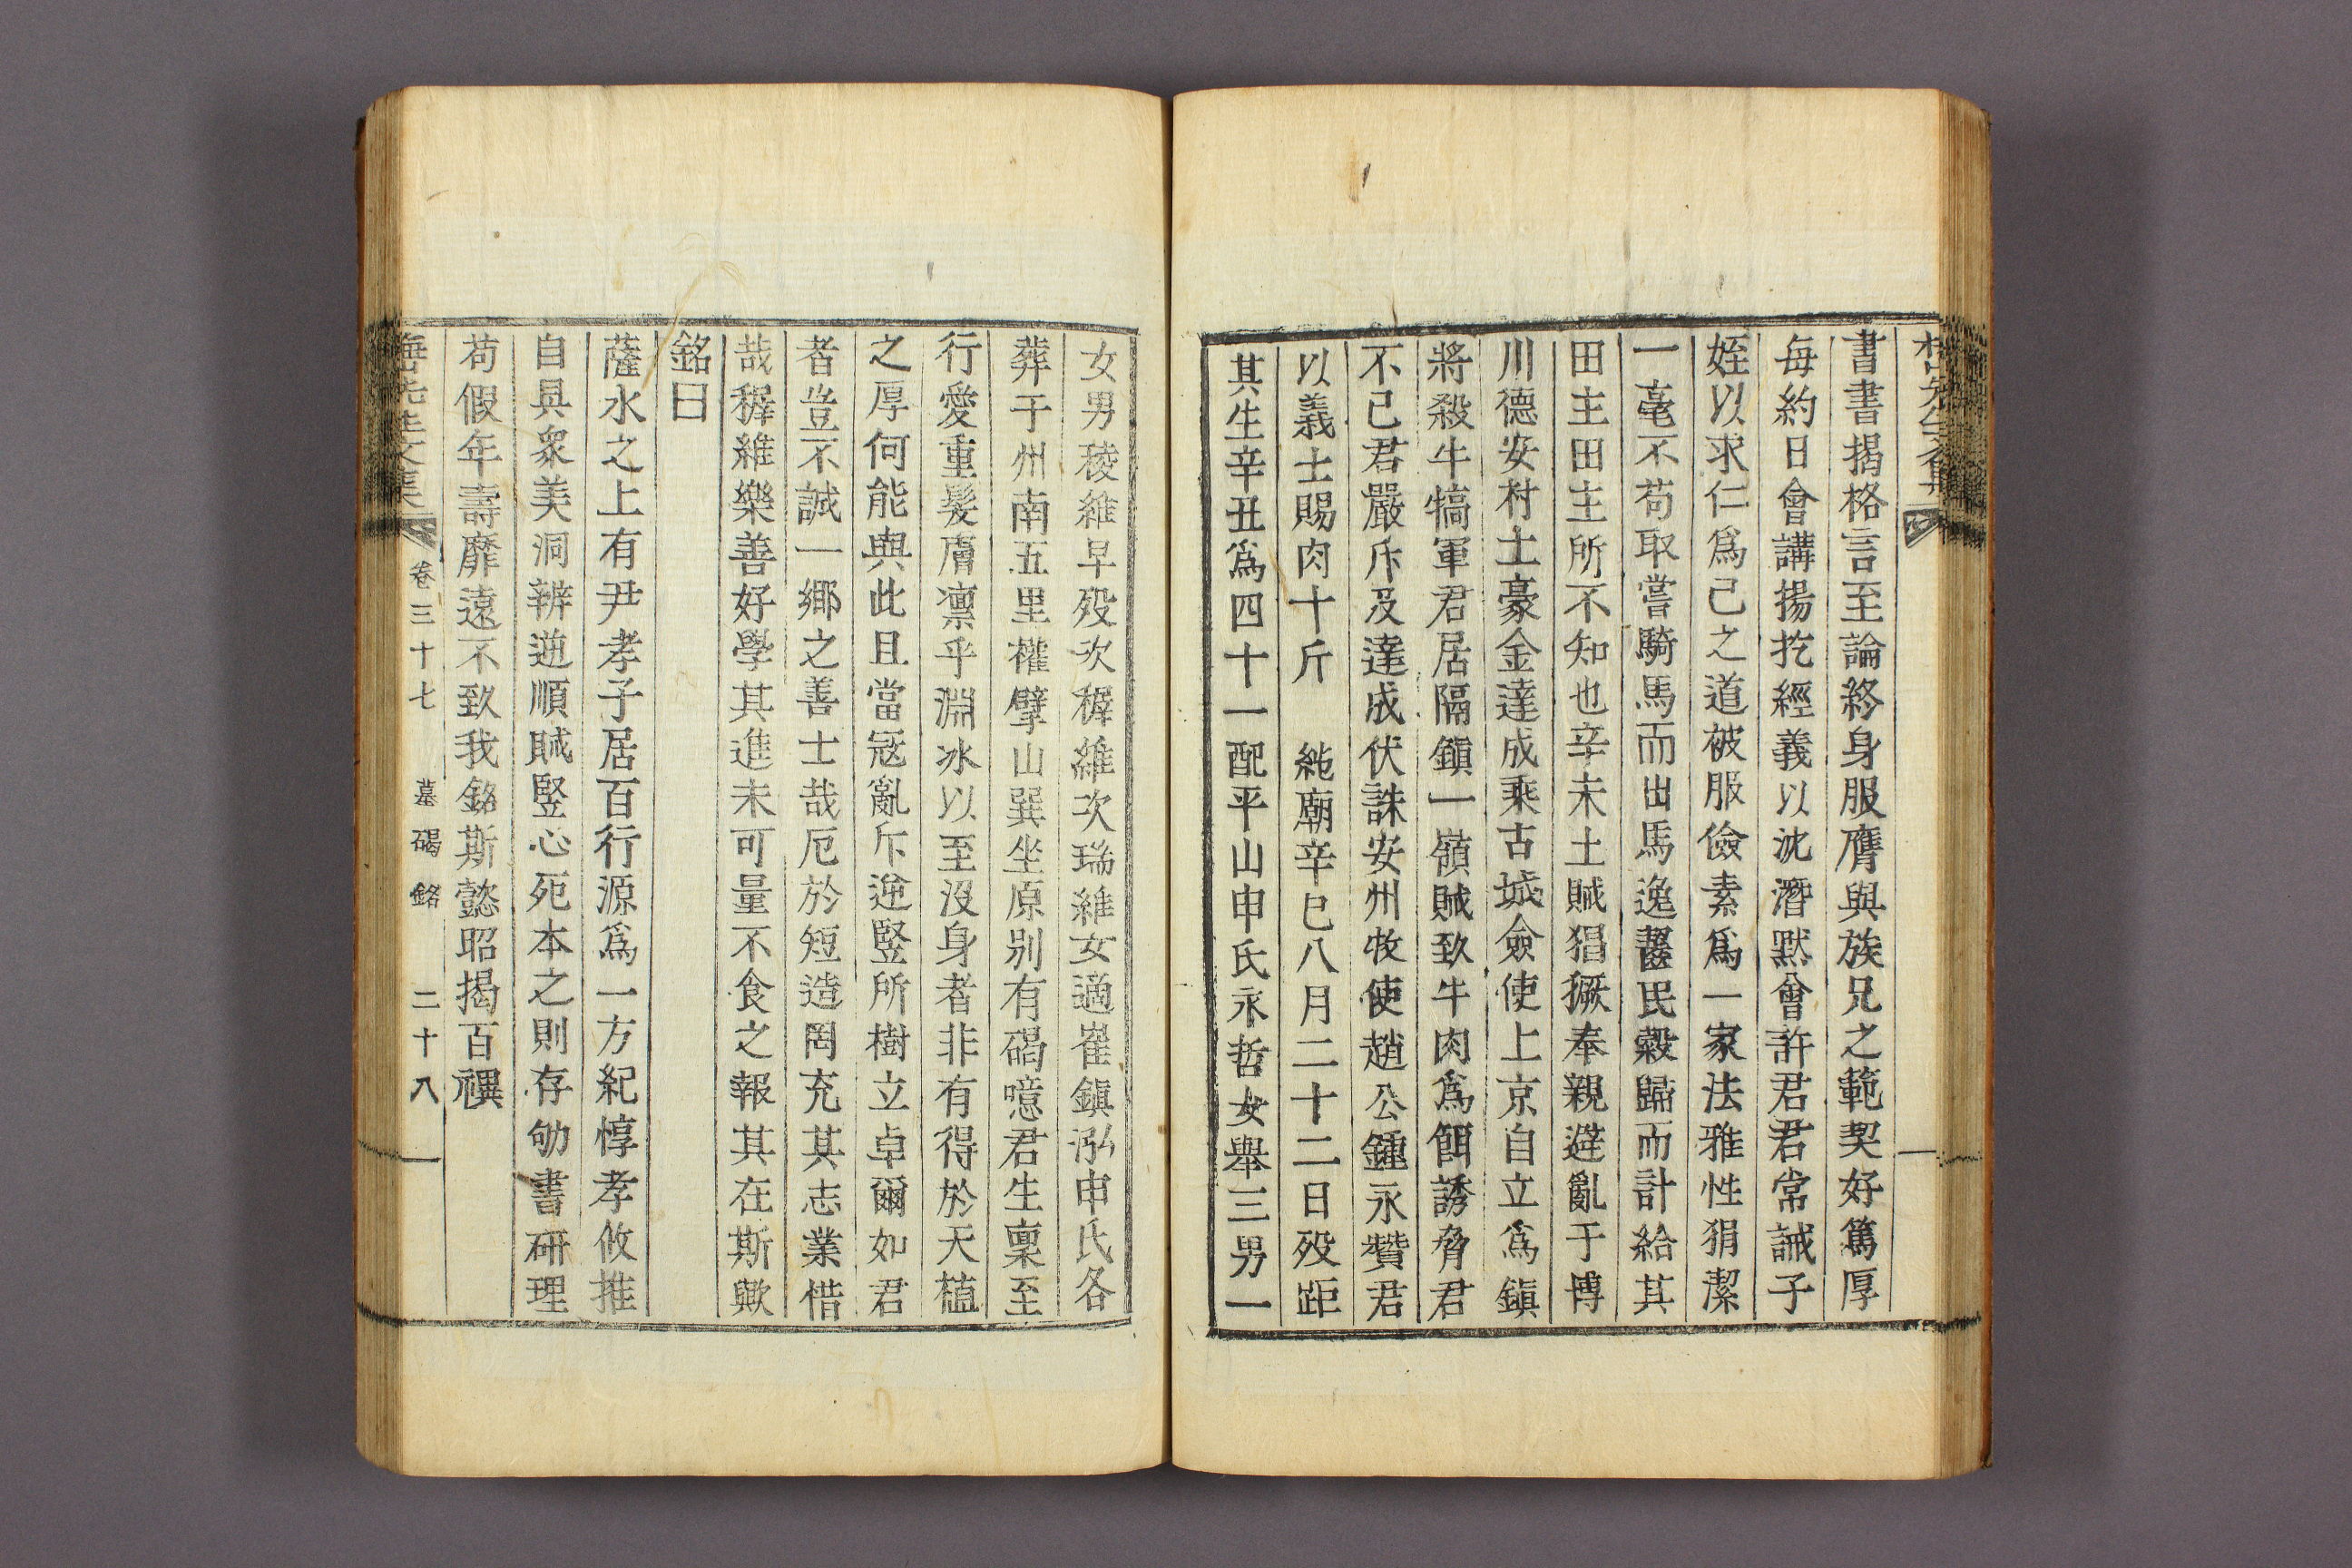 書書揭格言至論終身服膺與族兄之範契好篤厚
每約日會講揚扢經義以沈潛默會許君君常誡子
姪以求仁爲己之道被服儉素爲一家法雅性狷潔
一毫不苟取嘗騎馬而出馬逸齧民穀歸而計給其
田主田主所不知也辛未土賊猖獗奉親避亂于博
川德安村土豪金達成乘古城僉使上京自立爲鎭
將殺牛犒軍君居隔鎭一嶺賊致牛肉爲餌誘脅君
不已君嚴斥及達成伏誅安州牧使趙公鍾永贊君
以義士賜肉十斤 純廟辛巳八月二十二日歿距
其生辛丑爲四十一配平山申氏永哲女舉三男一
女男稜維早歿次穉維次瑞維女適崔鎭泓申氏各
葬于州南五里權擘山巽坐原別有碣噫君生稟至
行愛重髮膚凛乎淵冰以至沒身者非有得於天植
之厚何能與此且當寇亂斥逆竪所樹立卓爾如君
者豈不誠一鄉之善士哉厄於短造罔充其志業惜
哉穉維樂善好學其進未可量不食之報其在斯歟
銘曰
薩水之上有尹孝子居百行源爲一方紀惇孝攸推
自具衆美洞辨逆順賊竪心死本之則存劬書硏理
苟假年壽靡遠不致我銘斯懿昭揭百禩
先生文集 卷三十七 墓碣銘 二十八